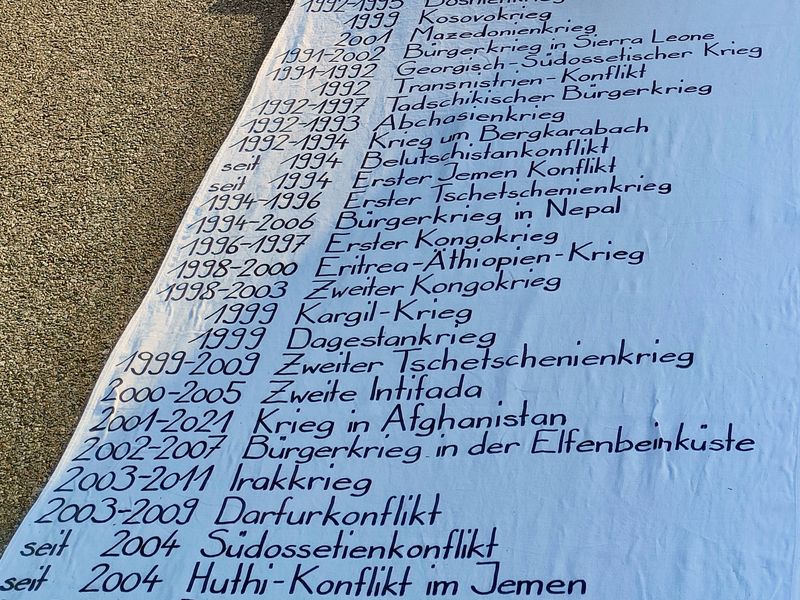 1992-1995 Bosnienkrieg
1999 Kosovokrieg
2001 Mazedonienkrieg
1991-2002 Bürgerkrieg in Sierra Leone
1991-1992 Georgisch-Südossetischer Krieg
1992 Transnistrien-Konflikt
1992-1997 Tadschikischer Bürgerkrieg
1992-1993 Abchasienkrieg
1992-1994 Krieg um Bergkarabach
seit 1994 Belutschistankonflikt
seit 1994 Erster Jemen Konflikt
1994-1996 Erster Tschetschenienkrieg
1994-2006 Bürgerkrieg in Nepal
1996-1997 Erster Kongokrieg
1998-2000 Eritrea-Äthiopien-Krieg
1998-2003 Zweiter Kongokrieg
1999 Kargil-Krieg
1999 Dagestankrieg
1999-2009 Zweiter Tschetschenienkrieg
2000-2005 Zweite Intifada
2001-2021 Krieg in Afghanistan
2002-2007 Bürgerkrieg in der Elfenbeinküste
2003-2011 Irakkrieg
2003-2009 Darfurkonflikt
seit 2004 Südossetienkonflikt
seit 2004 Huthi-Konflikt im Jemen